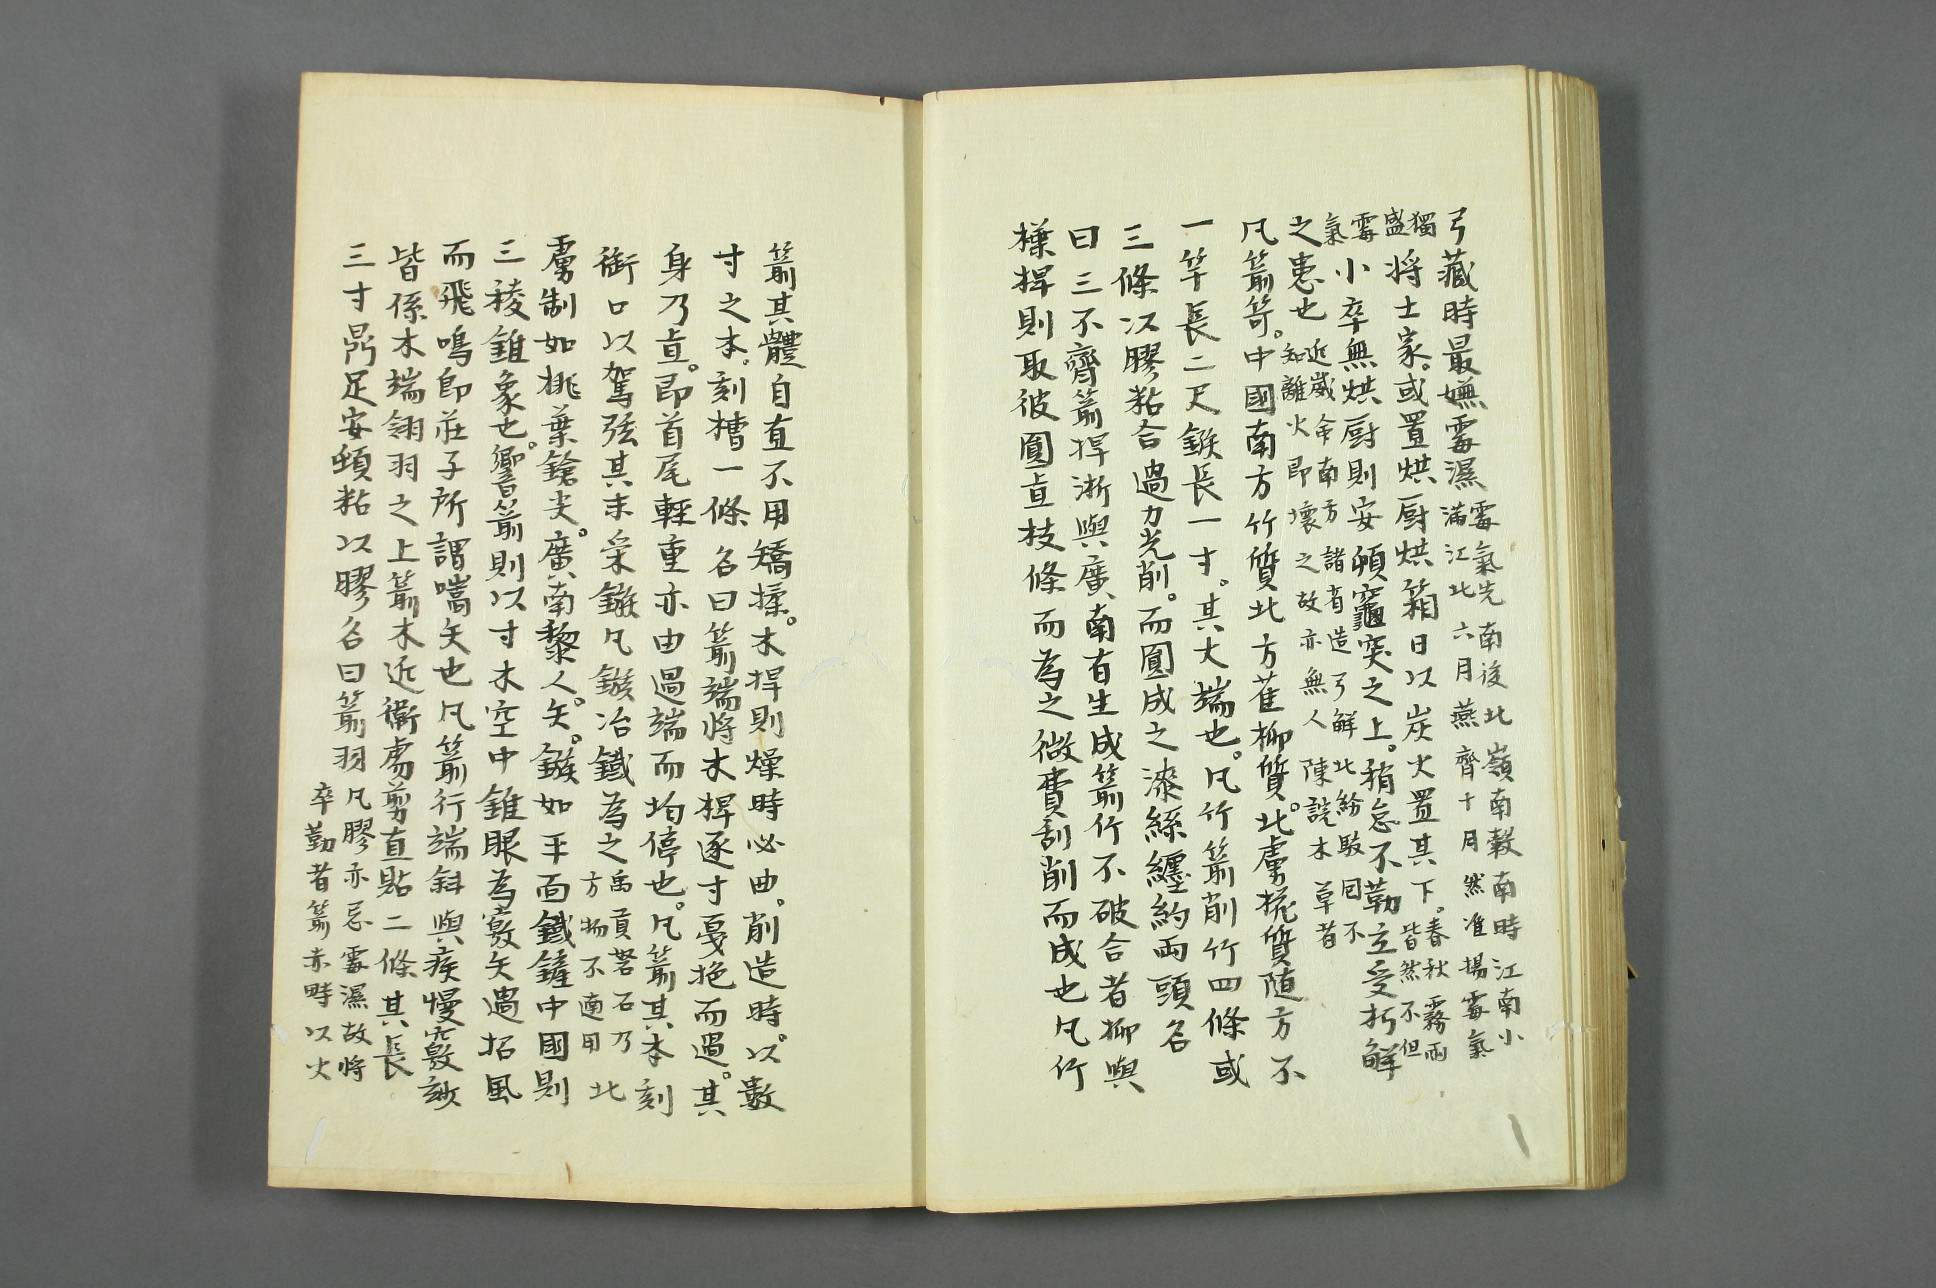 弓藏時最嫌霉濕霉氣先南後北嶺南穀南時江南小滿江北六月燕齊十月然准揚霉氣
獨盛將士家。或置烘厨烘箱日以炭火置其下。春秋霧雨皆然不但
霉氣小卒無烘厨則安頓竈突之上。稍怠不勤立受朽解
之患也近歲命南方諸省造弓解北紛駁囘不知離火即壞之故亦無人陳說本草者
凡箭笴。中國南方竹質北方萑柳質。北虜桄質随方不
一竿長二尺鏃長一寸。其大端也。凡竹箭削竹四條或
三條以膠粘合過力光削。而圓成之漆絲纏約兩頭名
曰三不齊箭捍浙與廣南有生成箭竹不破合者柳與
樺捍則取彼圓直枝條而為之微費刮削而成也凡竹
箭其體自直不用矯揉。木捍則燥時必曲。削造時。以數
寸之木。刻槽一條名曰箭端將木捍逐寸戞拖而過。其
身乃直。即首尾輕重亦由過端而均停也。凡箭其本刻
銜口以駕弦其末采鏃凡鏃冶鐵為之禹貢砮石乃方物不適用北
虜制如桃葉鎗尖。廣南黎人。矢。鏃如平面鐵鏟中國則
三稜錐象也。響箭則以寸木空中錐眼為竅矢過招風
而飛鳴即莊子所謂嚆矢也凡箭行端斜與疾慢竅玅
皆係木端翎羽之上箭木近銜處剪直點二條其長
三寸鼎足安頓粘以膠名曰箭羽凡膠亦忌霉濕故將卒勤者箭亦時以火